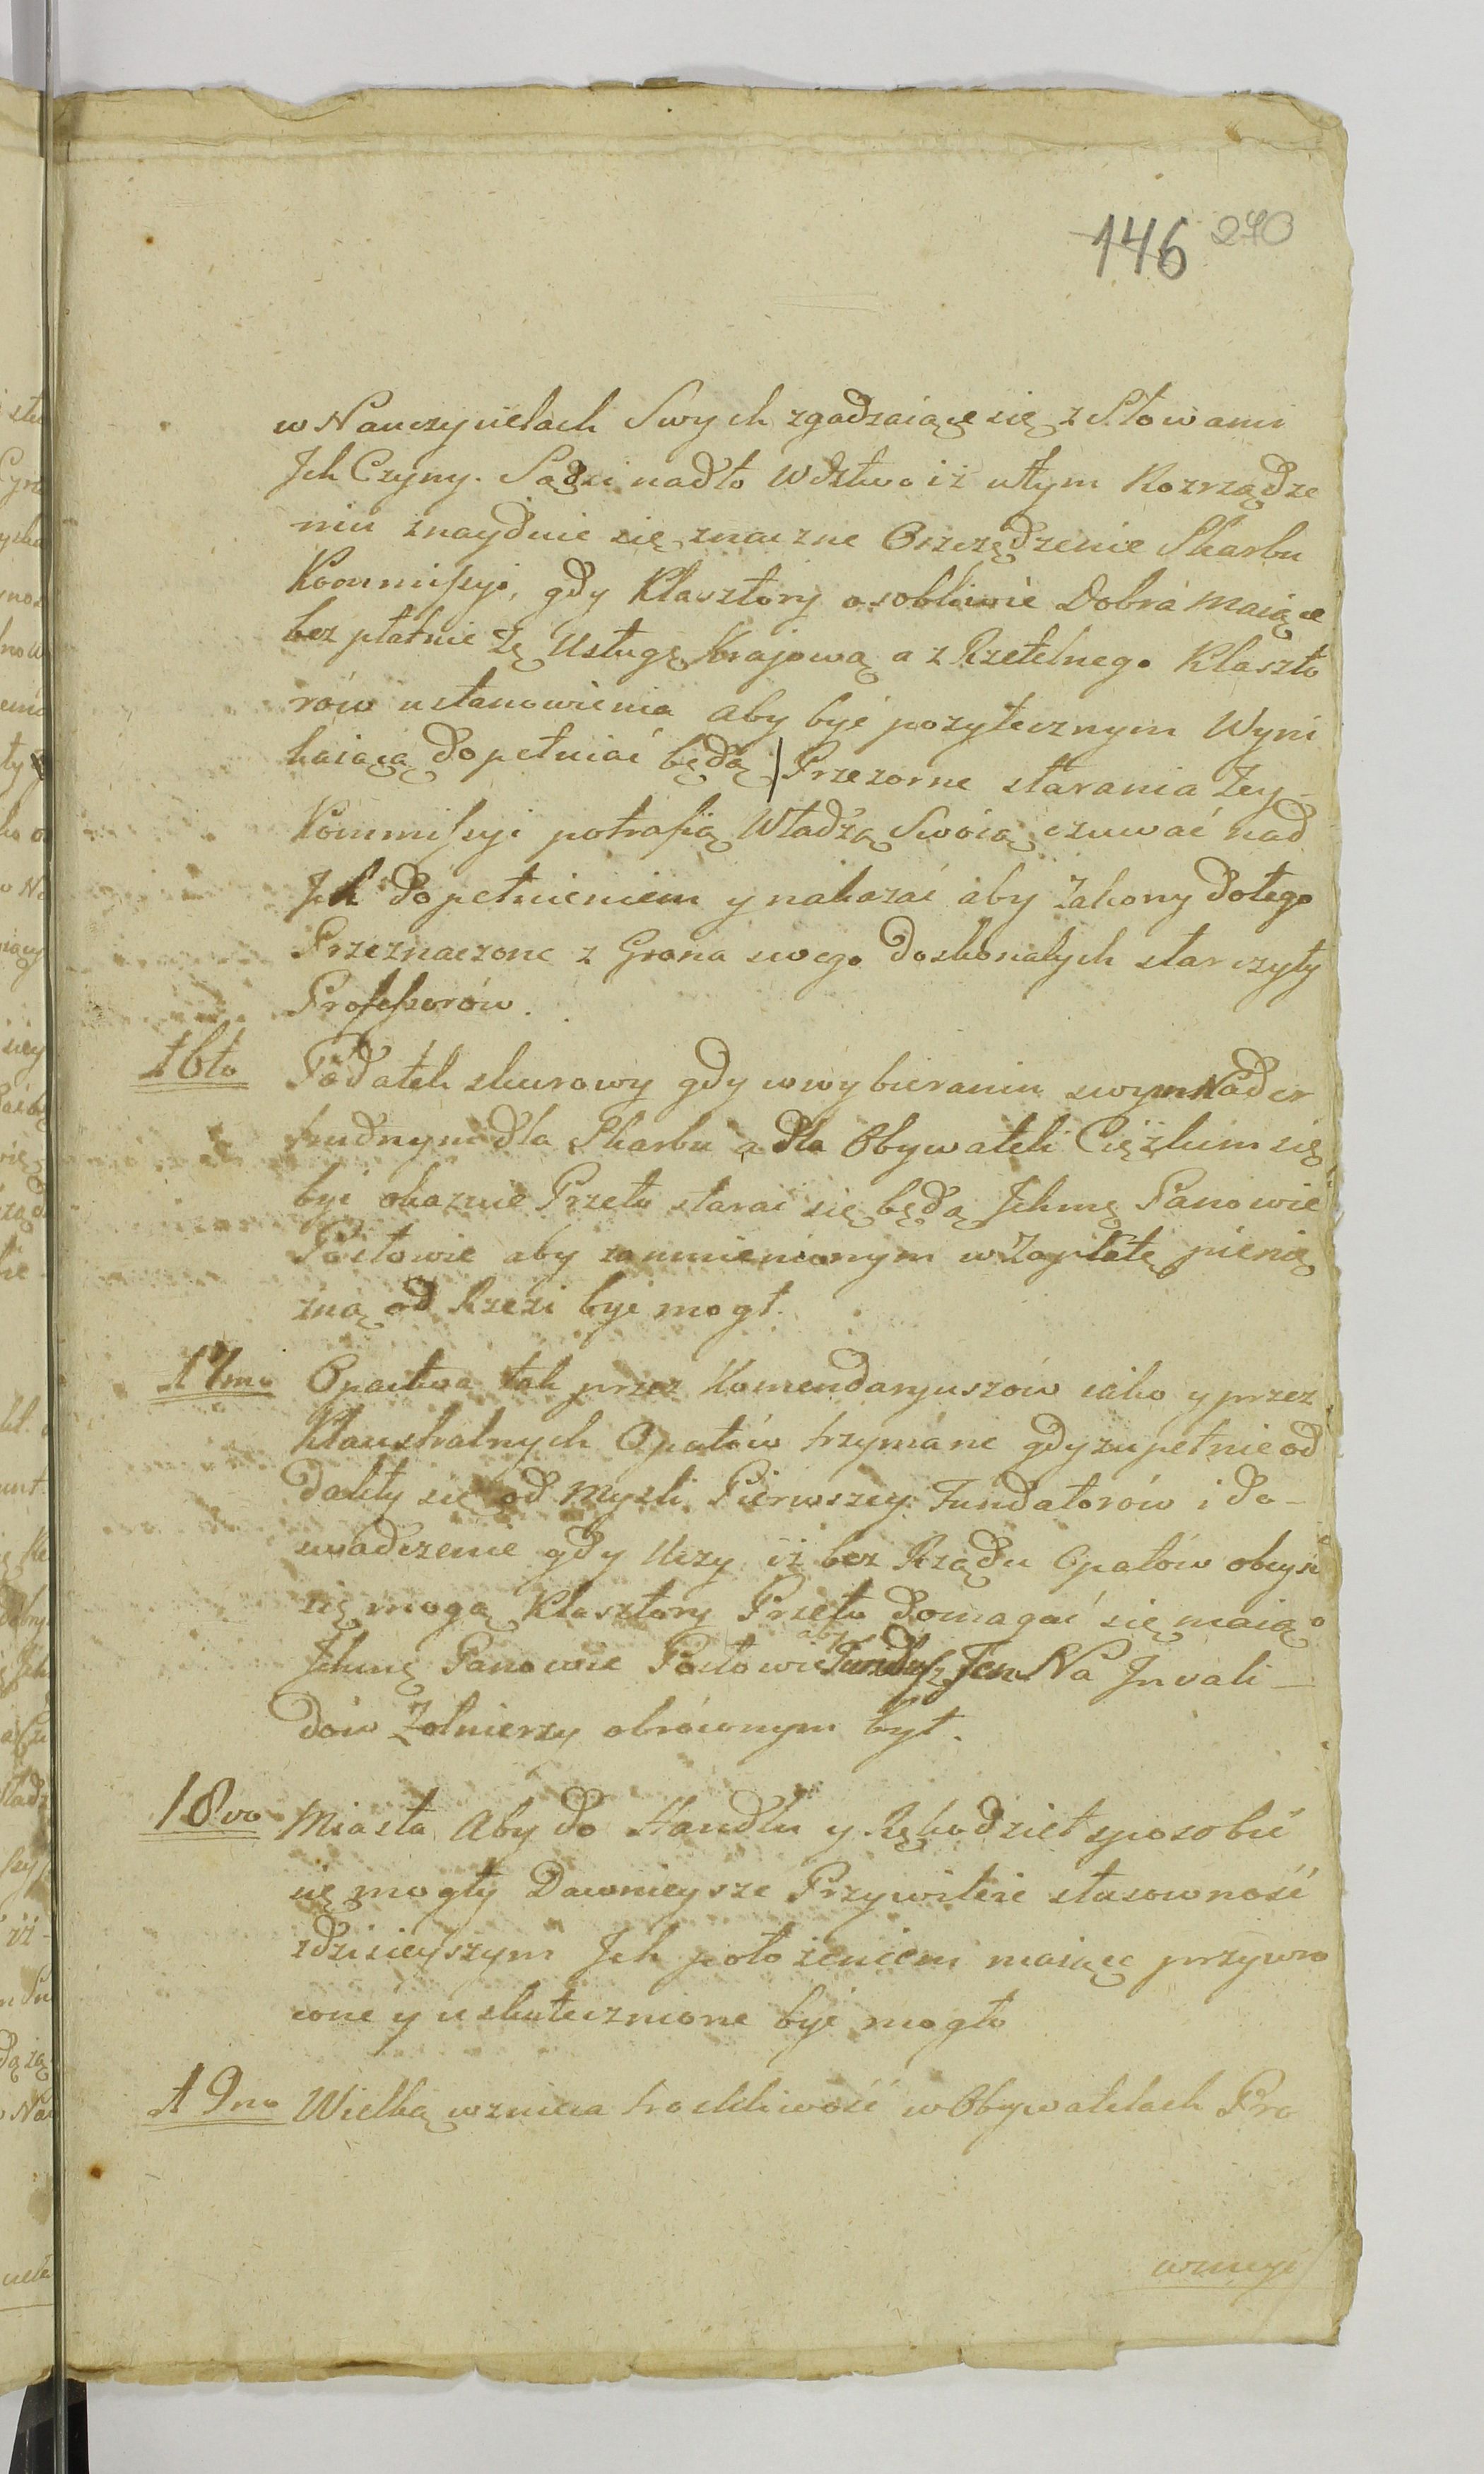 146 270
w Nauczycielach Swych zgadzaiące się z Słowami
Jch Czyny. Sądzi nadto Wdztwo iż w tym Rozrządze
niu znayduie się znaczne Oszczędzenie Skarbu
Kommissyi, gdy Klasztory osobliwie Dobra maiące
bez płatnie Tę Usługę krajową a z Rzetelnego Klaszto
rów ustanowienia aby być pozytecznym Wyni
kaiącą dopełniać będą | Przezorne starania Tey
Kommissyi potrafią Władzą Swoią czuwać nad
Jch dopełnieniem y nakazać aby Zakony do tego
Przeznaczone z Grona swego doskonałych starczyły
Professorów.
16to Podatek skurowy gdy w wybieraniu swym Nader
trudnym dla Skarbu a dla Obywateli Ciężkim się
być okazuie Przeto starać się będą Jchmę Panowie
Posłowie aby zammienionym w Zapłatę pienię
zną od Rzezi być mogł.
17mo Opactwa tak przez Komendaryuszow iako y przez
Klaustralnych Opatów trzymane gdy zupełnie od
daliły się od Mysli Pierwszey Fundatorów i do-
swiadczenie gdy Uczy iż bez Rządu Opatów obeysc
się mogą Klasztory Przeto domagać się maią
Jchmę Panowie Posłowie aby Fundusz Ten Na Jnvali-
dów Żołnierzy obrócnym był.
18vo Miasta Aby do Handlu y Rękodzieł sposobić
się mogły Dawnieysze Przywileie stosowność
z dzisieyszym Jch położeniem maiące przywro
cone y uskutecznione być mogło
19no Wielką wznieca troskliwość w Obywatelach Pro